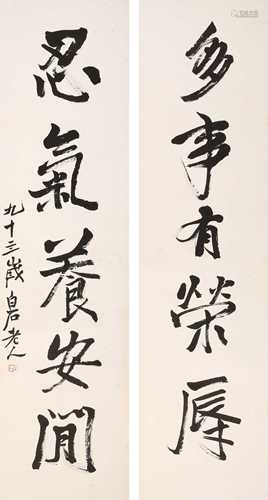 多事有榮辱
忍氣養安閒
九十三歲白石老人